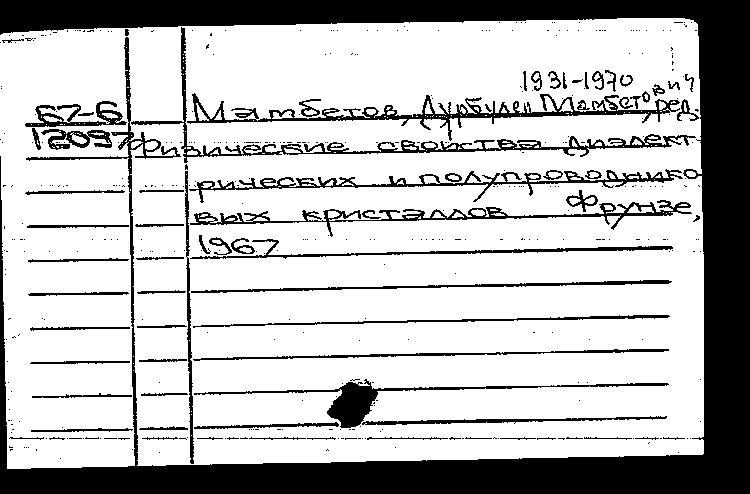 1931-1970
67-6 Мамбетов, Дурбулен Мамбетович, ред.
12097 Физические свойства диэлект-
рических и полупроводнико-
вых кристаллов Фрунзе,
1967